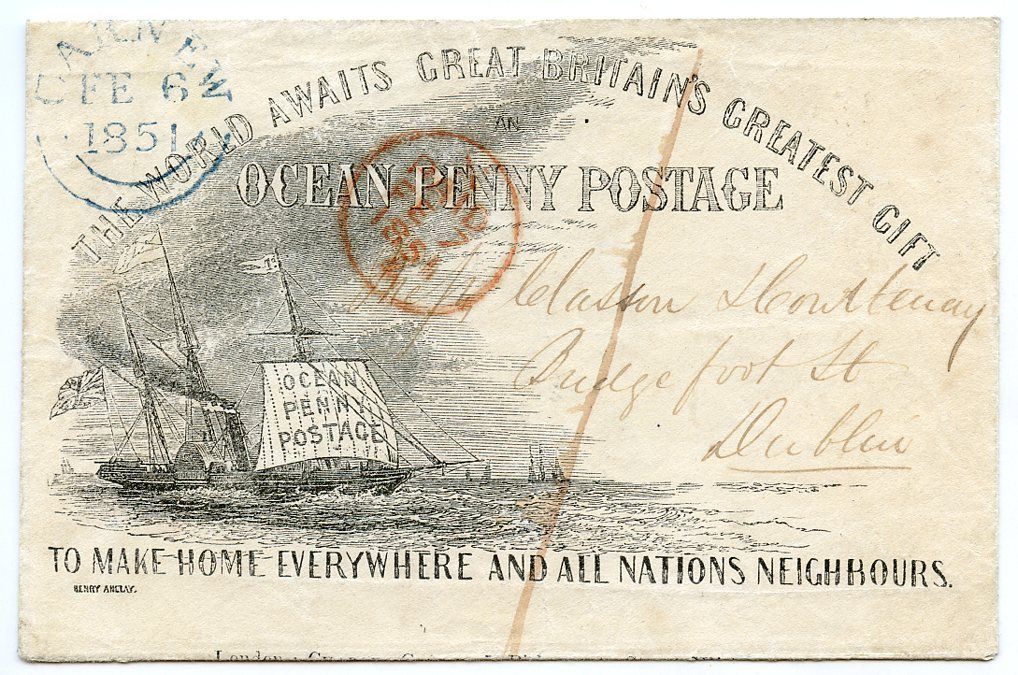 FE 6
1851
THE WORLD AWAITS GREAT BRITAIN'S GREATEST GIFT
AN
OCEAN PENNY POSTAGE
OCEAN
PENNY
POSTAGE
& Courtenay
Bridgefoot St
Dublin
TO MAKE HOME EVERYWHERE AND ALL NATIONS NEIGHBOURS.
HENRY ANELAY.
London